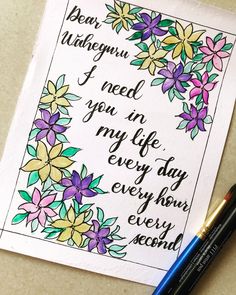 Dear
Waheguru
I need
you in
my life.
every day
every hour
every
second